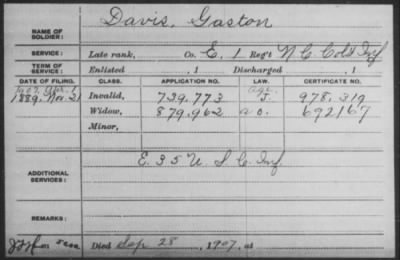 Davis, Gaston
NAME OF SOLDIER:
SERVICE: Late rank, Co. E, 1 Reg't N. C. Cold Inf
TERM OF SERVICE: Enlisted , 1 Discharged , 1
DATE OF FILING. CLASS. APPLICATION NO. LAW. CERTIFICATE NO.
1889, Nov. 21 Invalid, 739.773 J. 978.319
Widow, 879.962 a o. 692167
Minor,
E. 35 U. S. C. Inf.
ADDITIONAL SERVICES:
REMARKS:
Died Sep 28, 1907, at